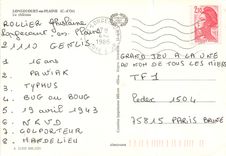 LONGECOURT-en-PLAINE (C.-d'Or)
Le château
ROLLIER Ghislaine
Longecourt en Plaine
21110 GENLIS
1 16 ans
2 PAWIAK
3 TYPHUS
4 BUG OU BOUG
5 19 avril 1943
6 NKVD
7 COLPORTEUR
8 HARDELIEU
2,20
GRAND JEU A LA UNE
NOM DE TOUS LES MIENS
TF1
Cedex 1504
75815 PARIS BRUNE